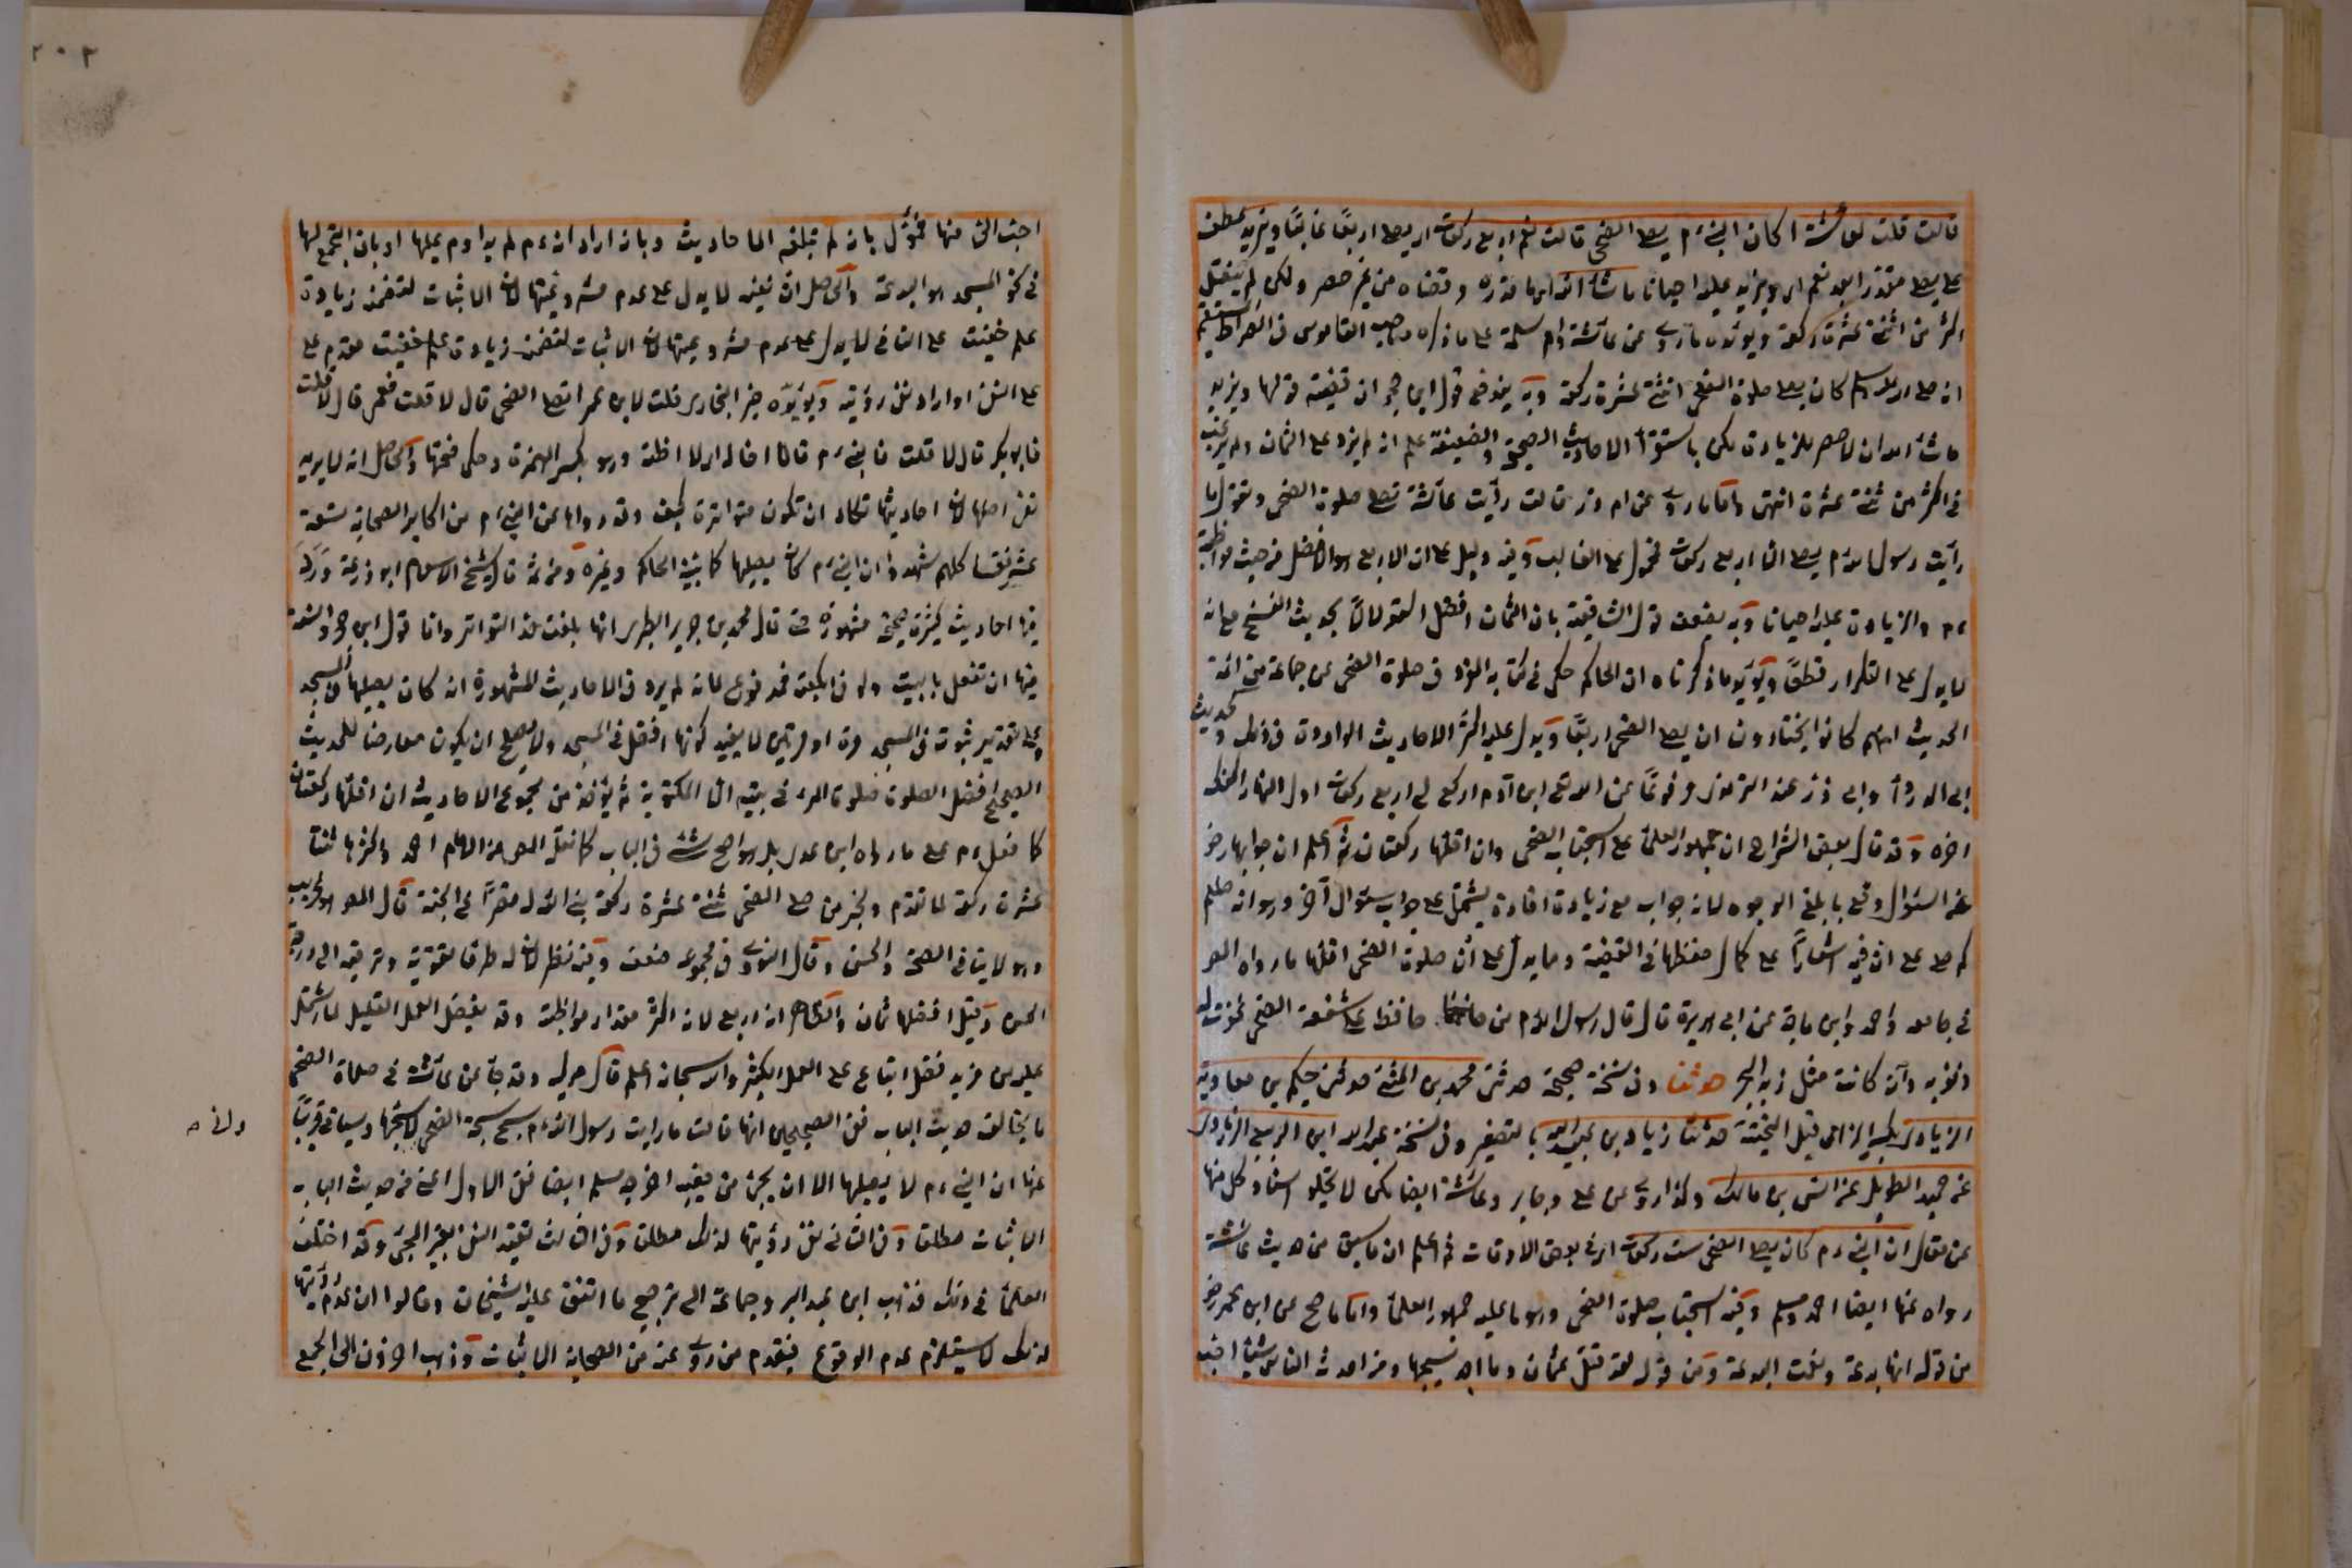 قالت قلت لعائشة اكان النبي ءم يصلي الضحى قالت نعم اربع ركعات اي يصلي اربعا غالبا ويزيد عطف
على يصلي مقدرا بعد نعم اى ويزيد عليه احيانا ماشاء الله اى ما قدره وقضاه من غير حصر ولكن لم ينقل
اكثر من اثنتى عشرة ركعة ويؤيده ما روى عن عائشة وام سلمة على ما ذكره صاحب القاموس فى الصراط المستقيم
انه صلى الله عليه وسلم كان يصلي صلوة الضحى اثنتى عشرة ركعة وبه يندفع قول ابن حجر ان قضية قولها ويزيد
ماشاء الله ان لا حصر للزيادة لكن باستقراء الاحاديث الصحيحة والضعيفة علم انه لم يزد على الثمان ولم يرغب
فى اكثر من ثنتى عشرة انتهى واما ما روى عن ام ذر قالت رأيت عائشة تصلي صلوة الضحى وتقول ما
رأيت رسول الله ءم يصلي الا اربع ركعات فمحمول على الغالب وفيه دليل على ان الاربع هو الافضل من حيث مواظبة
ءم والزيادة عليه احيانا وبه يضعف قول الشافعية بان الثمان افضل استدلالا بحديث الفتح مع انه
لا يدل على التكرار قطعا ويؤيد ما ذكرناه ان الحاكم حكى فى كتابه المفرد فى صلوة الضحى عن جماعة من ائمة
الحديث انهم كانوا يختارون ان يصلي الضحى اربعا ويدل عليه اكثر الاحاديث الواردة فى ذلك كحديث
ابى الدرداء وابى ذر عند الترمذى مرفوعا عن الله تعالى ابن آدم اركع لى اربع ركعات اول النهار اكفك
اخره وقد قال بعض الشراح ان جمهور العلماء على استحباب الضحى وان اقلها ركعتان ثم اعلم ان جوابها رض
عن السؤال وقع بابلغ الوجوه لانه جواب مع زيادة افادة يشتمل على جواب سؤال آخر وهو انه صلعم
كم صلى على ان فيه اشعارا على كمال حفظها فى القضية ومما يدل على ان صلوة الضحى اقلها ما رواه المص
فى جامعه واحمد وابن ماجة عن ابى هريرة قال قال رسول الله ءم من حافظ على شفعة الضحى غفرت له
ذنوبه وان كانت مثل زبد البحر حدثنا وفى نسخة صحيحة حدثنى محمد بن المثنى حدثنى حكيم بن معاوية
الزيادى بكسر الزاى قبل التحتية حدثنا زياد بن عبيد الله بالتصغير وفى نسخة عبد الله ابن الربيع الزيادى
عن حميد الطويل عن انس بن مالك وكذا روى عن على وجابر وعائشة ايضا لكن لا يخلو اسناد كل منها
عن مقال ان النبي ءم كان يصلي الضحى ست ركعات اى فى بعض الاوقات ثم اعلم ان ما سبق من حديث عائشة
رواه عنها ايضا احمد ومسلم وفيه استحباب صلوة الضحى وهو ما عليه جمهور العلماء واما ما صح عن ابن عمر رض
من قوله انها بدعة ونعمت البدعة ومن قوله لقد قتل عثمان وما احد يسبحها وما احدث الناس شيئا احب
احب الى منها فمؤول بانه لم تبلغه الاحاديث وبانه اراد انه ءم لم يداوم عليها او بان التجمع لها
فى نحو المسجد هو البدعة والحاصل ان نفيه لا يدل على عدم مشروعيتها لان الاثبات لتضمنه زيادة
علم خفيت على النافى لا يدل على عدم مشروعيتها لان الاثبات لتضمنه زيادة علم خفيت مقدم على
على النفى او اراد نفى رؤيته ويؤيده خبر البخارى قلت لابن عمر اتصلي الضحى قال لا قلت فعمر قال لا قلت
فابو بكر قال لا قلت فالنبي ءم قال لا اخاله اى لا اظنه وهو بكسر الهمزة وحكى فتحها والحاصل انه لا يريد
نفى اصلها لان احاديثها تكاد ان تكون متواترة كيف وقد رواها عن النبي ءم من اكابر الصحابة تسعة
عشر نفسا كلهم شهدوا ان النبي ءم كان يصليها كما بينه الحاكم وغيره ومن ثمة قال شيخ الاسلام ابو زرعة ورد
فيها احاديث كثيرة صحيحة مشهورة حتى قال محمد بن جرير الطبرى انها بلغت حد التواتر واما قول ابن حجر والسنة
فيها ان تفعل بالبيت ولو فى الكعبة فمدفوع لانه لم يرد فى الاحاديث المشهورة انه كان يصليها فى المسجد
وعلى تقدير ثبوته فى المسجد مرة او مرتين لا يفيد كونها افضل فى المسجد ولا يصلح ان يكون معارضا للحديث
الصحيح افضل الصلوة صلوة المرء فى بيته الا المكتوبة ثم يؤخذ من مجموع الاحاديث ان اقلها ركعتان
كما فعل ءم على ما رواه ابن عدى بل هو اصح شئ فى الباب كما نقله المص عن الامام احمد واكثرها ثنتا
عشرة ركعة لما تقدم ولخبر من صلى الضحى ثنتى عشرة ركعة بنى الله له قصرا فى الجنة قال المص هو غريب
وهو لا ينافى الصحة والحسن وقال النووى فى مجموعه ضعف وفيه نظر لان له طرقا تقويه وترقيه الى درجة
الحسن وقيل افضلها ثمان والظاهر انه اربع لانه اكثر مقدار مواظبته وقد يفضل العمل القليل لما اشتمل
عليه من مزيد فضل اتباع على العمل الكثير والله سبحانه اعلم قال ميرك وقد جاء عن عائشة فى صلاة الضحى
ما يخالف حديث الباب ففى الصحيحين انها قالت ما رايت رسول الله ءم يسبح سبحة الضحى لاسبحها وسياتى قريبا
عنها ان النبي ءم لا يصليها الا ان يجئ من مغيبه اخرجه مسلم ايضا ففى الاول اعنى من حديث الباب
الاثبات مطلقا وفى الثانى نفى رؤيتها لذلك مطلقا وفى الثالث تقييد النفى بغير المجئ وقد اختلف
العلماء فى ذلك فذهب ابن عبد البر وجماعة الى ترجيح ما اتفق عليه الشيخان وقالوا ان عدم رؤيتها
لذلك لا يستلزم عدم الوقوع فيقدم من روى عنه من الصحابة الاثبات وذهب اخرون الى الجمع